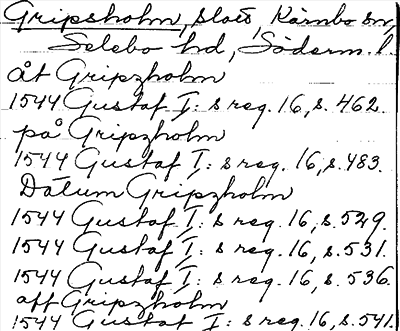 Gripsholm, slott, Kärnbo sn,
Selebo hd, Söderm. l.
åt Gripzholm
1544 Gustaf I: s reg. 16, s. 462.
på Gripzholm
1544 Gustaf I: s reg. 16, s. 483.
Datum Gripzholm
1544 Gustaf I: s reg. 16, s. 529.
1544 Gustaf I: s reg. 16, s. 531.
1544 Gustaf I: s reg. 16, s. 536.
aff Gripzholm
1544 Gustaf I: s reg. 16, s. 541.